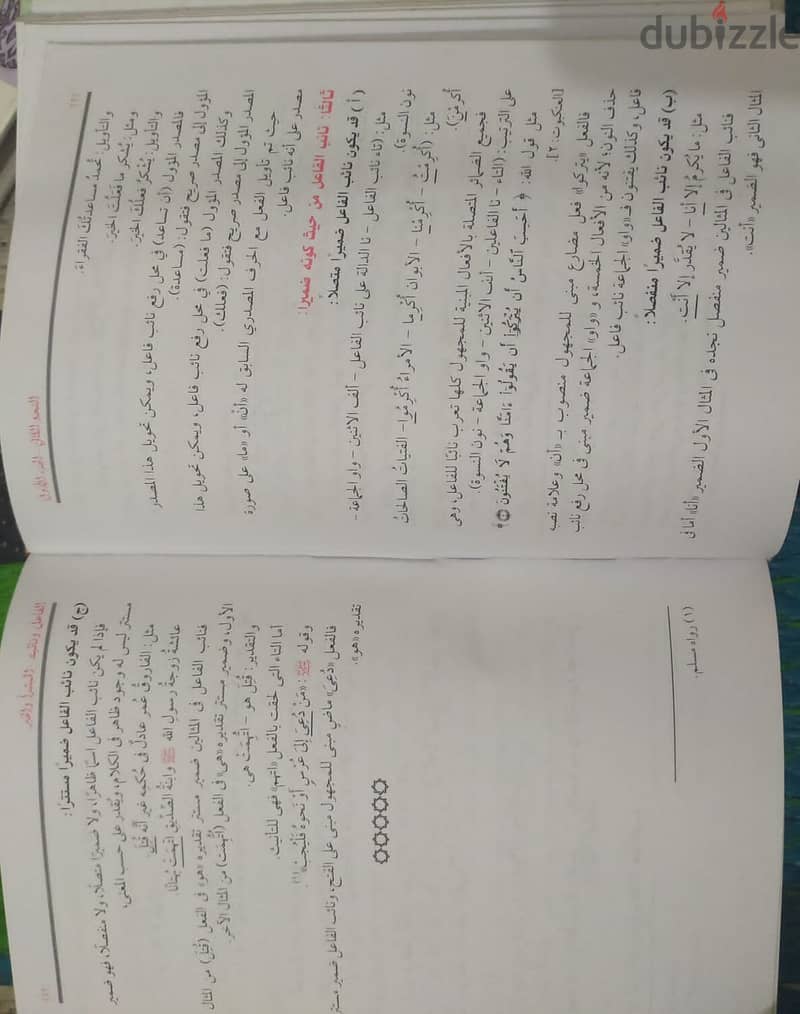 dubizzle
النحو الثانى - الجزء الأول
والتأويل: تُحمدُ مساعدتُك الفقراءَ.
ومثل: يُشكر ما فعلتَ الخيرَ.
والتأويل: يُشكرُ فعلُكَ الخيرَ.
فالمصدر المؤول (أن تساعد) فى محل رفع نائب فاعل، ويمكن تحويل هذا المصدر
المؤول إلى مصدر صريح فنقول: (مساعدة).
وكذلك المصدر المؤول (ما فعلت) فى محل رفع نائب فاعل، ويمكن تحويل هذا
المصدر المؤول إلى مصدر صريح فنقول: (فعلك).
حيث تم تأويل الفعل مع الحرف المصدرى السابق له «أن» أو «ما» على صورة
مصدر على أنه نائب فاعل.
ثالثًا: نائب الفاعل من حيث كونه ضميرًا:
(أ) قد يكون نائب الفاعل ضميرًا متصلاً:
مثل: (تاء نائب الفاعل - نا الدالة على نائب الفاعل - ألف الاثنين - واو الجماعة -
نون النسوة).
مثل: (أُكرِمتُ - أُكرِمْنا - الأبوان أُكرِما - الأمراءُ أُكرِمُوا - الفتياتُ الصالحاتُ
أُكرِمْنَ).
فجميع الضمائر المتصلة بالأفعال المبنية للمجهول كلها تعرب نائبًا للفاعل، وهى
على الترتيب: (التاء - نا الفاعلين - ألف الاثنين - واو الجماعة - نون النسوة).
مثل قول الله: ﴿ أَحَسِبَ النَّاسُ أَن يُتْرَكُوا أَن يَقُولُوا ءَامَنَّا وَهُمْ لَا يُفْتَنُونَ ﴾
[العنكبوت: ٢].
فالفعل «يتركوا» فعل مضارع مبنى للمجهول منصوب بـ «أن» وعلامة نصبه
حذف النون؛ لأنه من الأفعال الخمسة، و«واو» الجماعة ضمير مبنى فى محل رفع نائب
فاعل، وكذلك يفتنون فـ«واو» الجماعة نائب فاعل.
(ب) قد يكون نائب الفاعل ضميرًا منفصلاً:
مثل: ما يُكرمُ إلا أنا - لا يُقدَّر إلا أنت.
فنائب الفاعل فى المثالين ضمير منفصل نجده فى المثال الأول الضمير «أنا» أما فى
المثال الثانى فهو الضمير «أنت».
الفاعل ونائبه - المبتدأ والخبر
(ج) قد يكون نائب الفاعل ضميرًا مستترًا:
فإذا لم يكن نائب الفاعل اسمًا ظاهرًا، ولا ضميرًا متصلًا، ولا منفصلًا، فهو ضمير
مستتر ليس له وجود ظاهر فى الكلام، ويُقدر على حسب المعنى.
مثل: الفاروقُ عُمر عادلٌ فى حُكمِه غير أنَّه قُتِلَ.
عائشةُ زوجةُ رسولِ الله ﷺ وابنةُ الصِّدِّيقِ اتُّهِمتْ بُهتانًا.
فنائب الفاعل فى المثالين ضمير مستتر تقديره «هو» فى الفعل (قُتِلَ) من المثال
الأول، وضمير مستتر تقديره «هى» فى الفعل (اتُّهِمَت) من المثال الآخر.
والتقدير: قُتِلَ هو - اتُّهِمَتْ هى.
أما التاء التى لحقت بالفعل «اتهم» فهى للتأنيث.
وقوله ﷺ: «مَنْ دُعِىَ إِلَى عُرْسٍ أَوْ نَحْوِهُ فَلْيُجِبْ»(١).
فالفعل «دُعِىَ» ماضٍ مبنى للمجهول مبنى على الفتح، ونائب الفاعل ضمير مستتر
تقديره «هو».
(١) رواه مسلم.